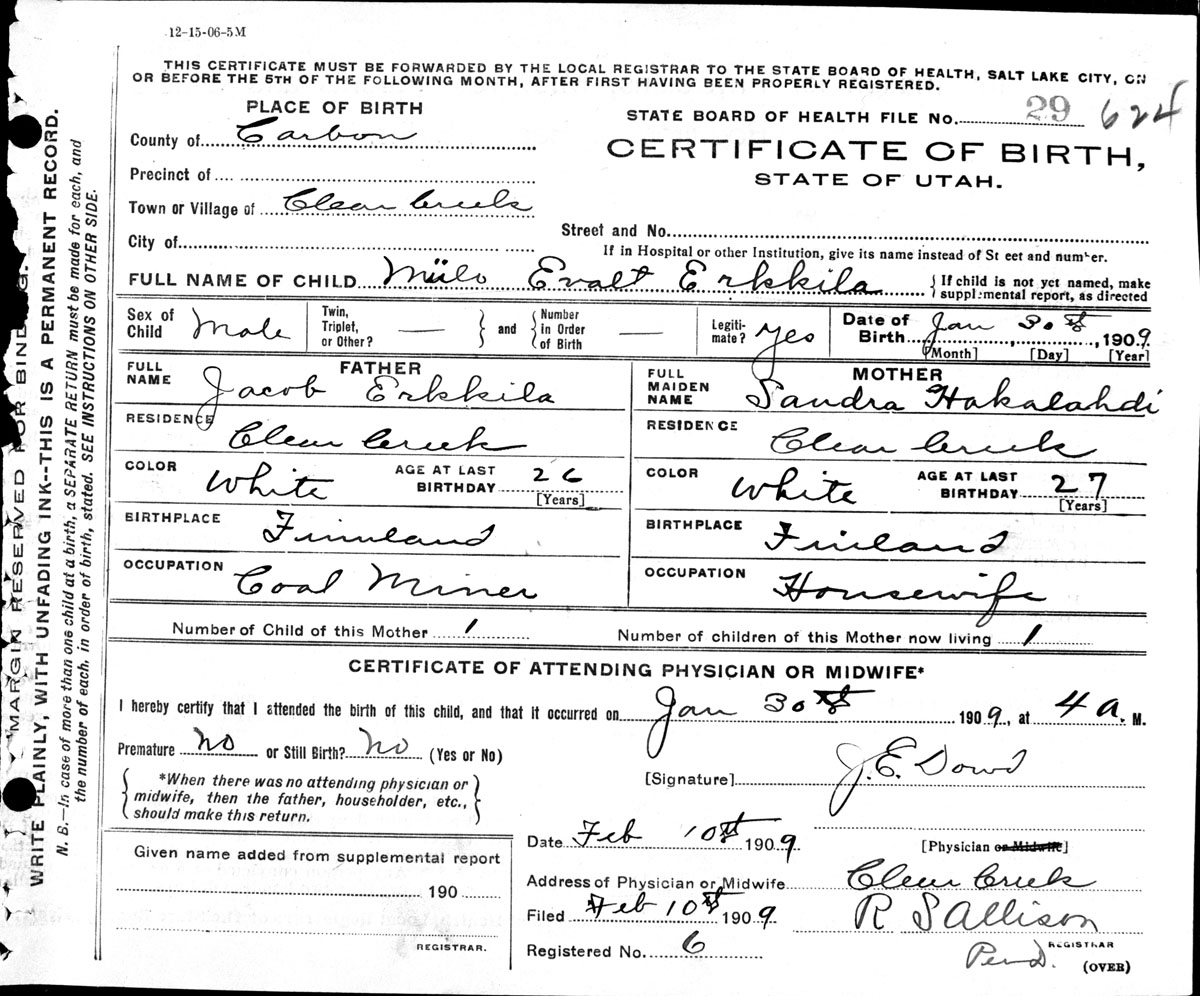 12-15-06-5M
THIS CERTIFICATE MUST BE FORWARDED BY THE LOCAL REGISTRAR TO THE STATE BOARD OF HEALTH, SALT LAKE CITY, ON
OR BEFORE THE 5TH OF THE FOLLOWING MONTH, AFTER FIRST HAVING BEEN PROPERLY REGISTERED.
PLACE OF BIRTH
STATE BOARD OF HEALTH FILE No. 29 624
County of Carbon
CERTIFICATE OF BIRTH,
STATE OF UTAH.
Precinct of
Town or Village of Clear Creek
Street and No.
City of
If in Hospital or other Institution, give its name instead of St eet and number.
FULL NAME OF CHILD Miilo Evalt Erkkila { If child is not yet named, make
supplemental report, as directed
Sex of Child Male Twin, Triplet, or Other? — } and { Number in Order of Birth — Legiti-mate? Yes Date of Birth Jan 30th, 1909
[Month] [Day] [Year]
FATHER
FULL NAME Jacob Erkkila
RESIDENCE Clear Creek
COLOR White AGE AT LAST BIRTHDAY 26
[Years]
BIRTHPLACE Finnland
OCCUPATION Coal Miner
MOTHER
FULL MAIDEN NAME Sandra Hakalahdi
RESIDENCE Clear Creek
COLOR White AGE AT LAST BIRTHDAY 27
[Years]
BIRTHPLACE Finland
OCCUPATION Housewife
Number of Child of this Mother 1 Number of children of this Mother now living 1
CERTIFICATE OF ATTENDING PHYSICIAN OR MIDWIFE*
I hereby certify that I attended the birth of this child, and that it occurred on Jan 30th 1909, at 4 a. M.
Premature No or Still Birth? No (Yes or No)
{ *When there was no attending physician or
midwife, then the father, householder, etc.,
should make this return. }
[Signature] J. E. Dowd
Date Feb 10th 1909 [Physician or Midwife]
Given name added from supplemental report
190
REGISTRAR.
Address of Physician or Midwife Clear Creek
Filed Feb 10th 1909 R S Allison
REGISTRAR
Registered No. 6
(OVER)
MARGIN RESERVED FOR BINDING.
WRITE PLAINLY, WITH UNFADING INK--THIS IS A PERMANENT RECORD.
N. B.—In case of more than one child at a birth, a SEPARATE RETURN must be made for each, and
the number of each, in order of birth, stated. SEE INSTRUCTIONS ON OTHER SIDE.